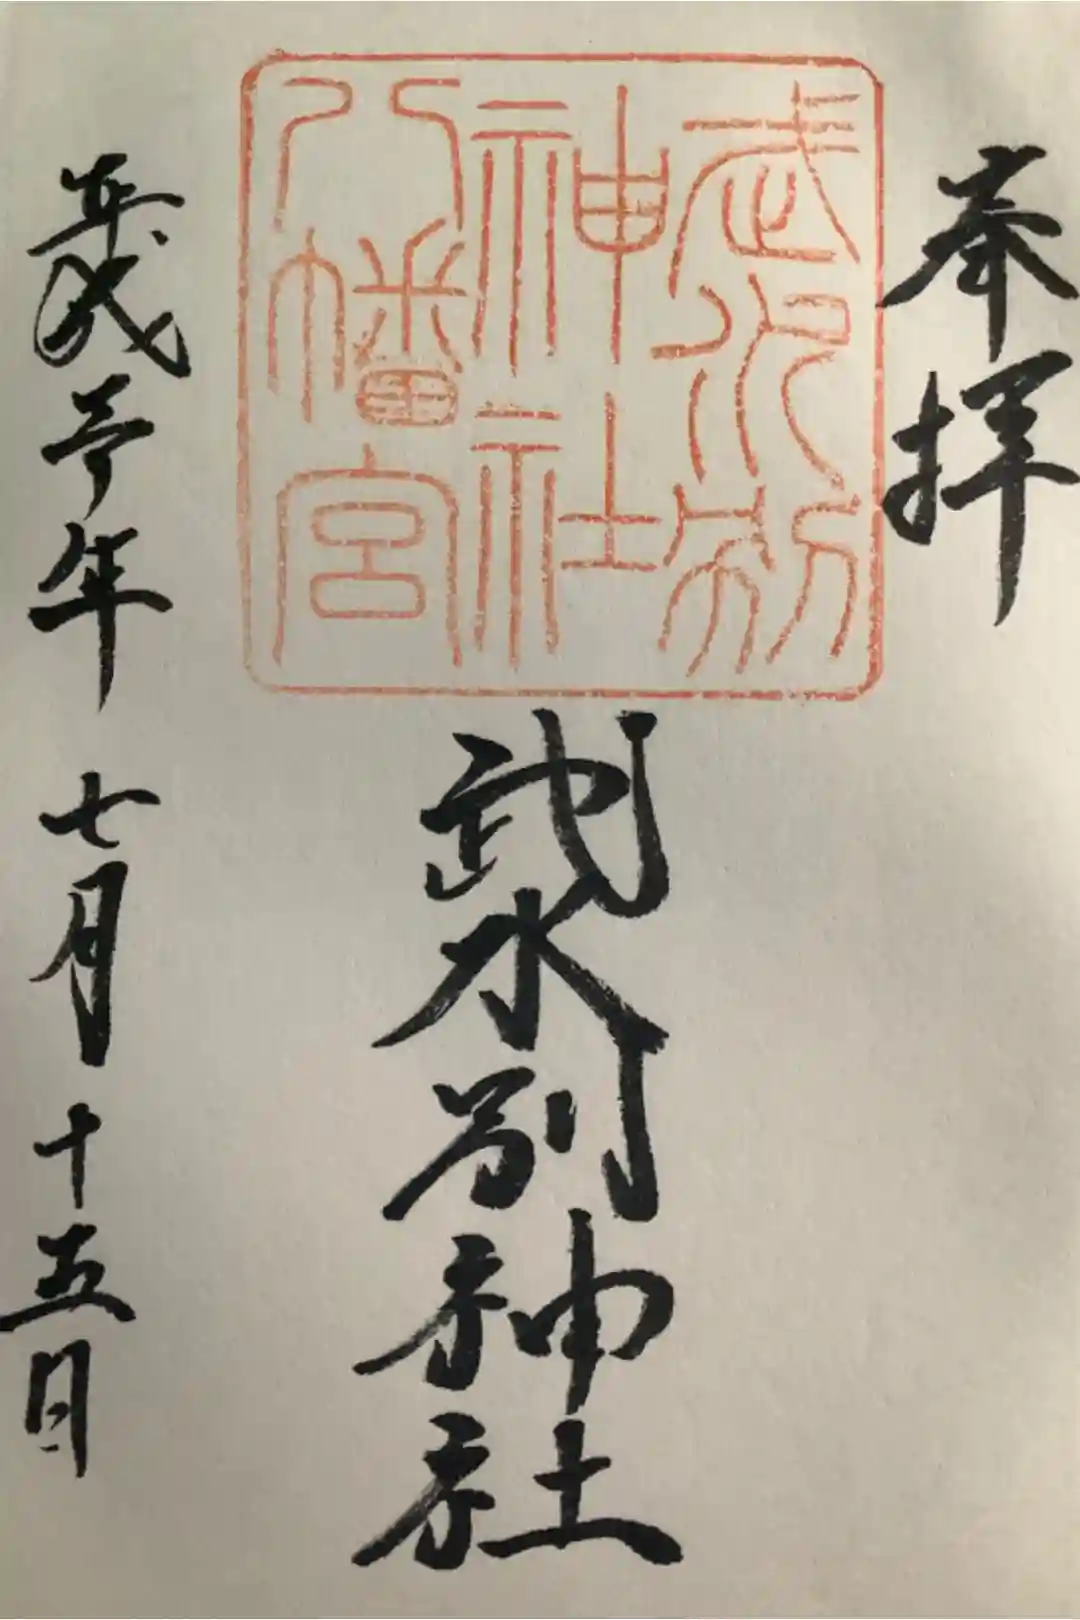 奉拝
武水別
神社
八幡宮
武水別神社
平成三十年七月十五日